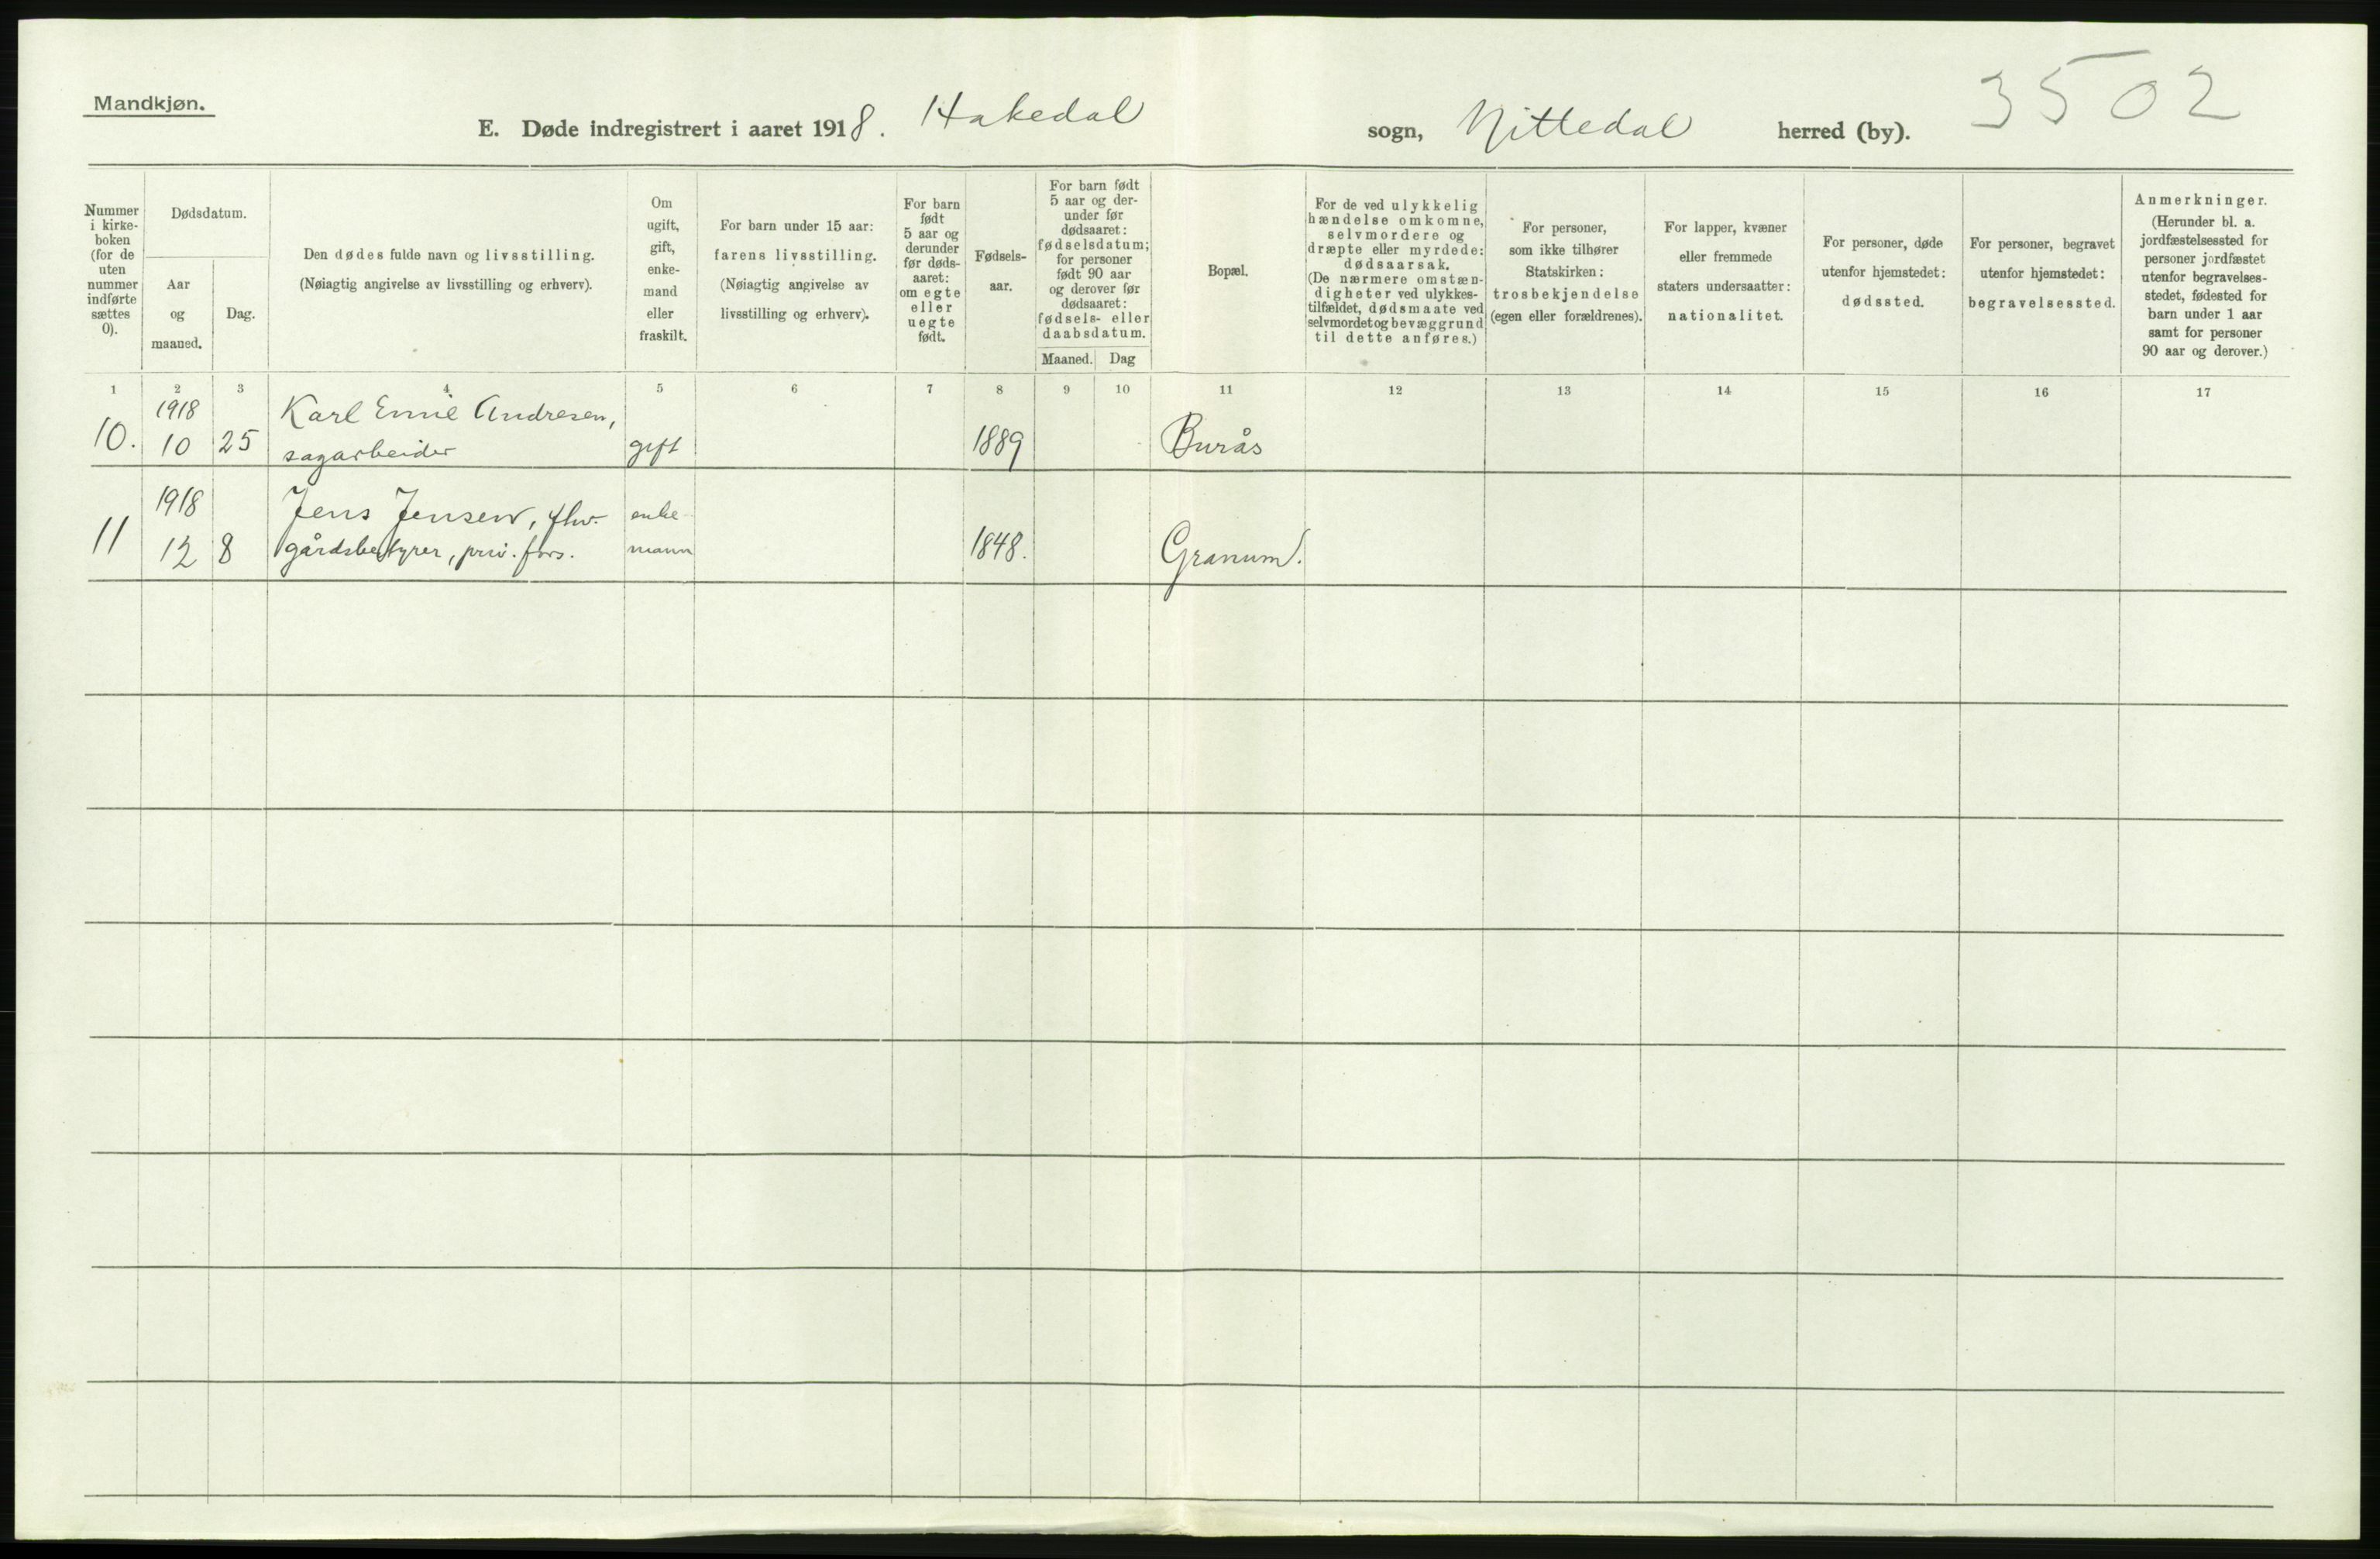 Mandkjøn.
E. Døde indregistrert i aaret 1918. Hakedal sogn, Nittedal herred (by). 3502
Nummer i kirke-boken (for de uten nummer indførte sættes 0).
Dødsdatum.
Aar og maaned.
Dag.
Den dødes fulde navn og livsstilling.
(Nøiagtig angivelse av livsstilling og erhverv).
Om ugift, gift, enke-mand eller fraskilt.
For barn under 15 aar:
farens livsstilling.
(Nøiagtig angivelse av livsstilling og erhverv).
For barn født 5 aar og derunder før døds-aaret: om egte eller uegte født.
Fødsels-aar.
For barn født 5 aar og der-under før dødsaaret: fødselsdatum; for personer født 90 aar og derover før dødsaaret: fødsels- eller daabsdatum.
Maaned. Dag
Bopæl.
For de ved ulykkelig hændelse omkomne, selvmordere og dræpte eller myrdede: dødsaarsak.
(De nærmere omstæn-digheter ved ulykkes-tilfældet, dødsmaate ved selvmordet og bevæggrund til dette anføres.)
For personer, som ikke tilhører Statskirken: trosbekjendelse (egen eller forældrenes).
For lapper, kvæner eller fremmede staters undersaatter: nationalitet.
For personer, døde utenfor hjemstedet: dødssted.
For personer, begravet utenfor hjemstedet: begravelsessted.
Anmerkninger.
(Herunder bl. a. jordfæstelsessted for personer jordfæstet utenfor begravelses-stedet, fødested for barn under 1 aar samt for personer 90 aar og derover.)
1 2 3 4 5 6 7 8 9 10 11 12 13 14 15 16 17
1918 Karl Emil Andresen,
10. 10 25 sagarbeider gift 1889 Burås
1918 Jens Jensen, fhv. enke-
11 12 8 gårdsbestyrer, priv. fors. mann 1848. Granum.